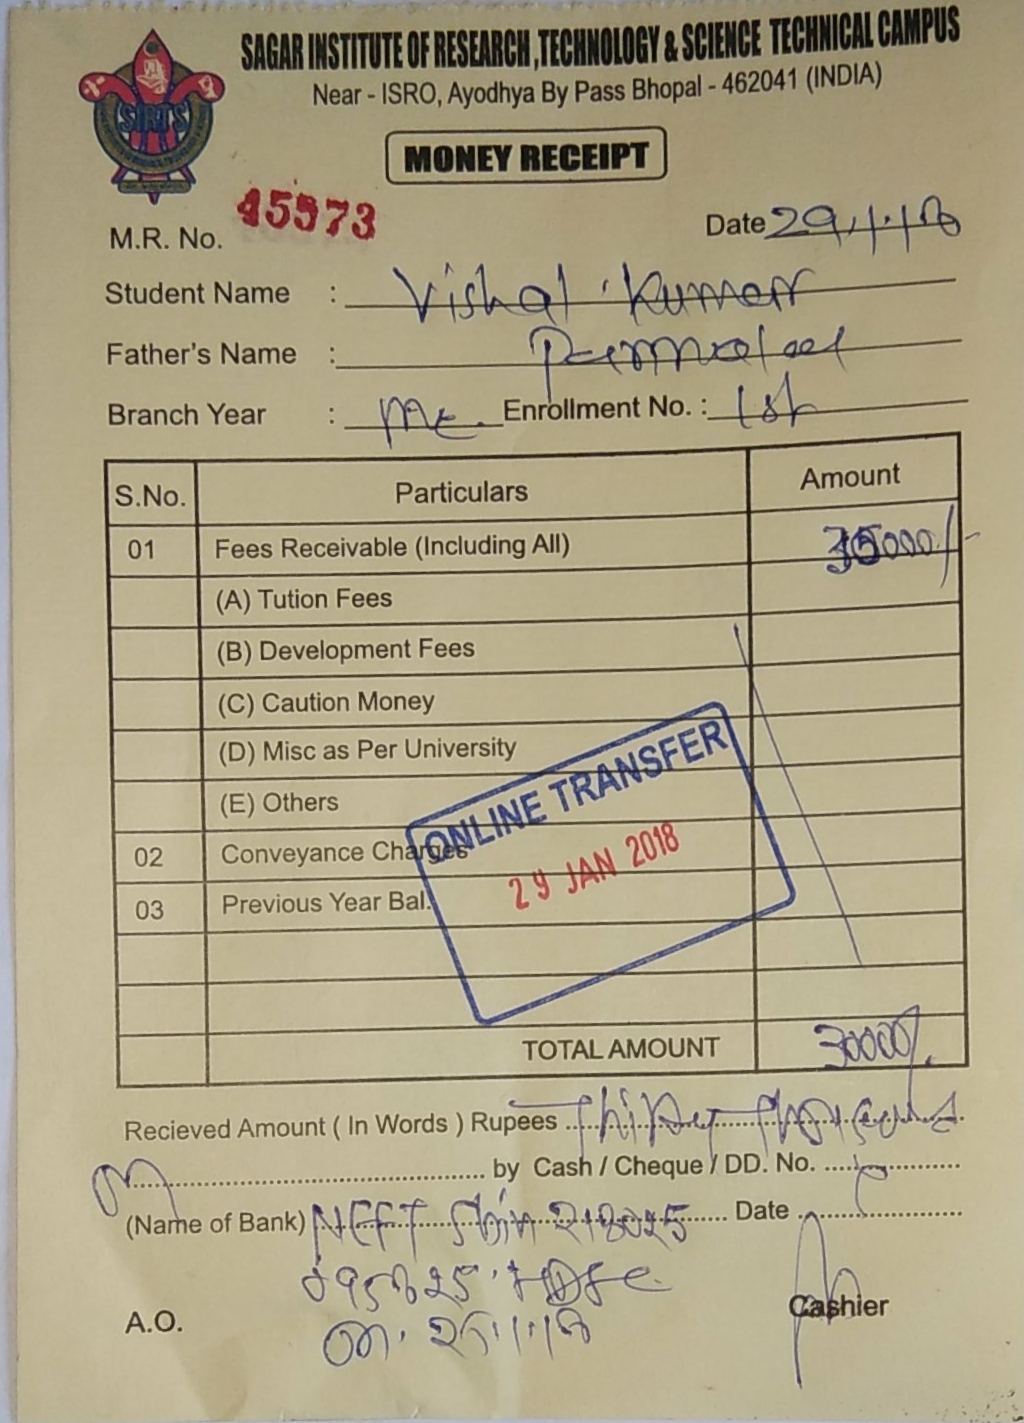 SAGAR INSTITUTE OF RESEARCH ,TECHNOLOGY & SCIENCE TECHNICAL CAMPUS
Near - ISRO, Ayodhya By Pass Bhopal - 462041 (INDIA)
SIRTS
MONEY RECEIPT
M.R. No. 45573 Date 29/1/18
Student Name : Vishal Kumar
Father's Name :
Branch Year : ME. Enrollment No. : 1st
S.No. Particulars Amount
01 Fees Receivable (Including All) 30000/-
(A) Tution Fees
(B) Development Fees
(C) Caution Money
(D) Misc as Per University
(E) Others
02 Conveyance Charges
03 Previous Year Bal.
ONLINE TRANSFER
29 JAN 2018
TOTAL AMOUNT 30000/-
Recieved Amount ( In Words ) Rupees Thirty Thousand
by Cash / Cheque / DD. No.
(Name of Bank) NEFT Date
HDFC
A.O. Cashier